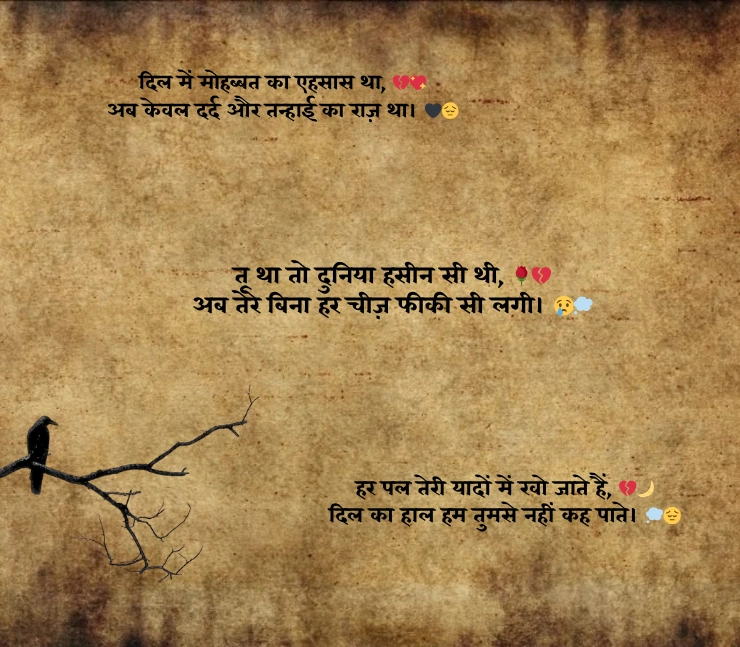 दिल में मोहब्बत का एहसास था, 💔💖
अब केवल दर्द और तन्हाई का राज़ था। 🖤😔
तू था तो दुनिया हसीन सी थी, 🌹💔
अब तेरे बिना हर चीज़ फीकी सी लगी। 😢💭
हर पल तेरी यादों में खो जाते हैं, 💔🌙
दिल का हाल हम तुमसे नहीं कह पाते। 💭😔